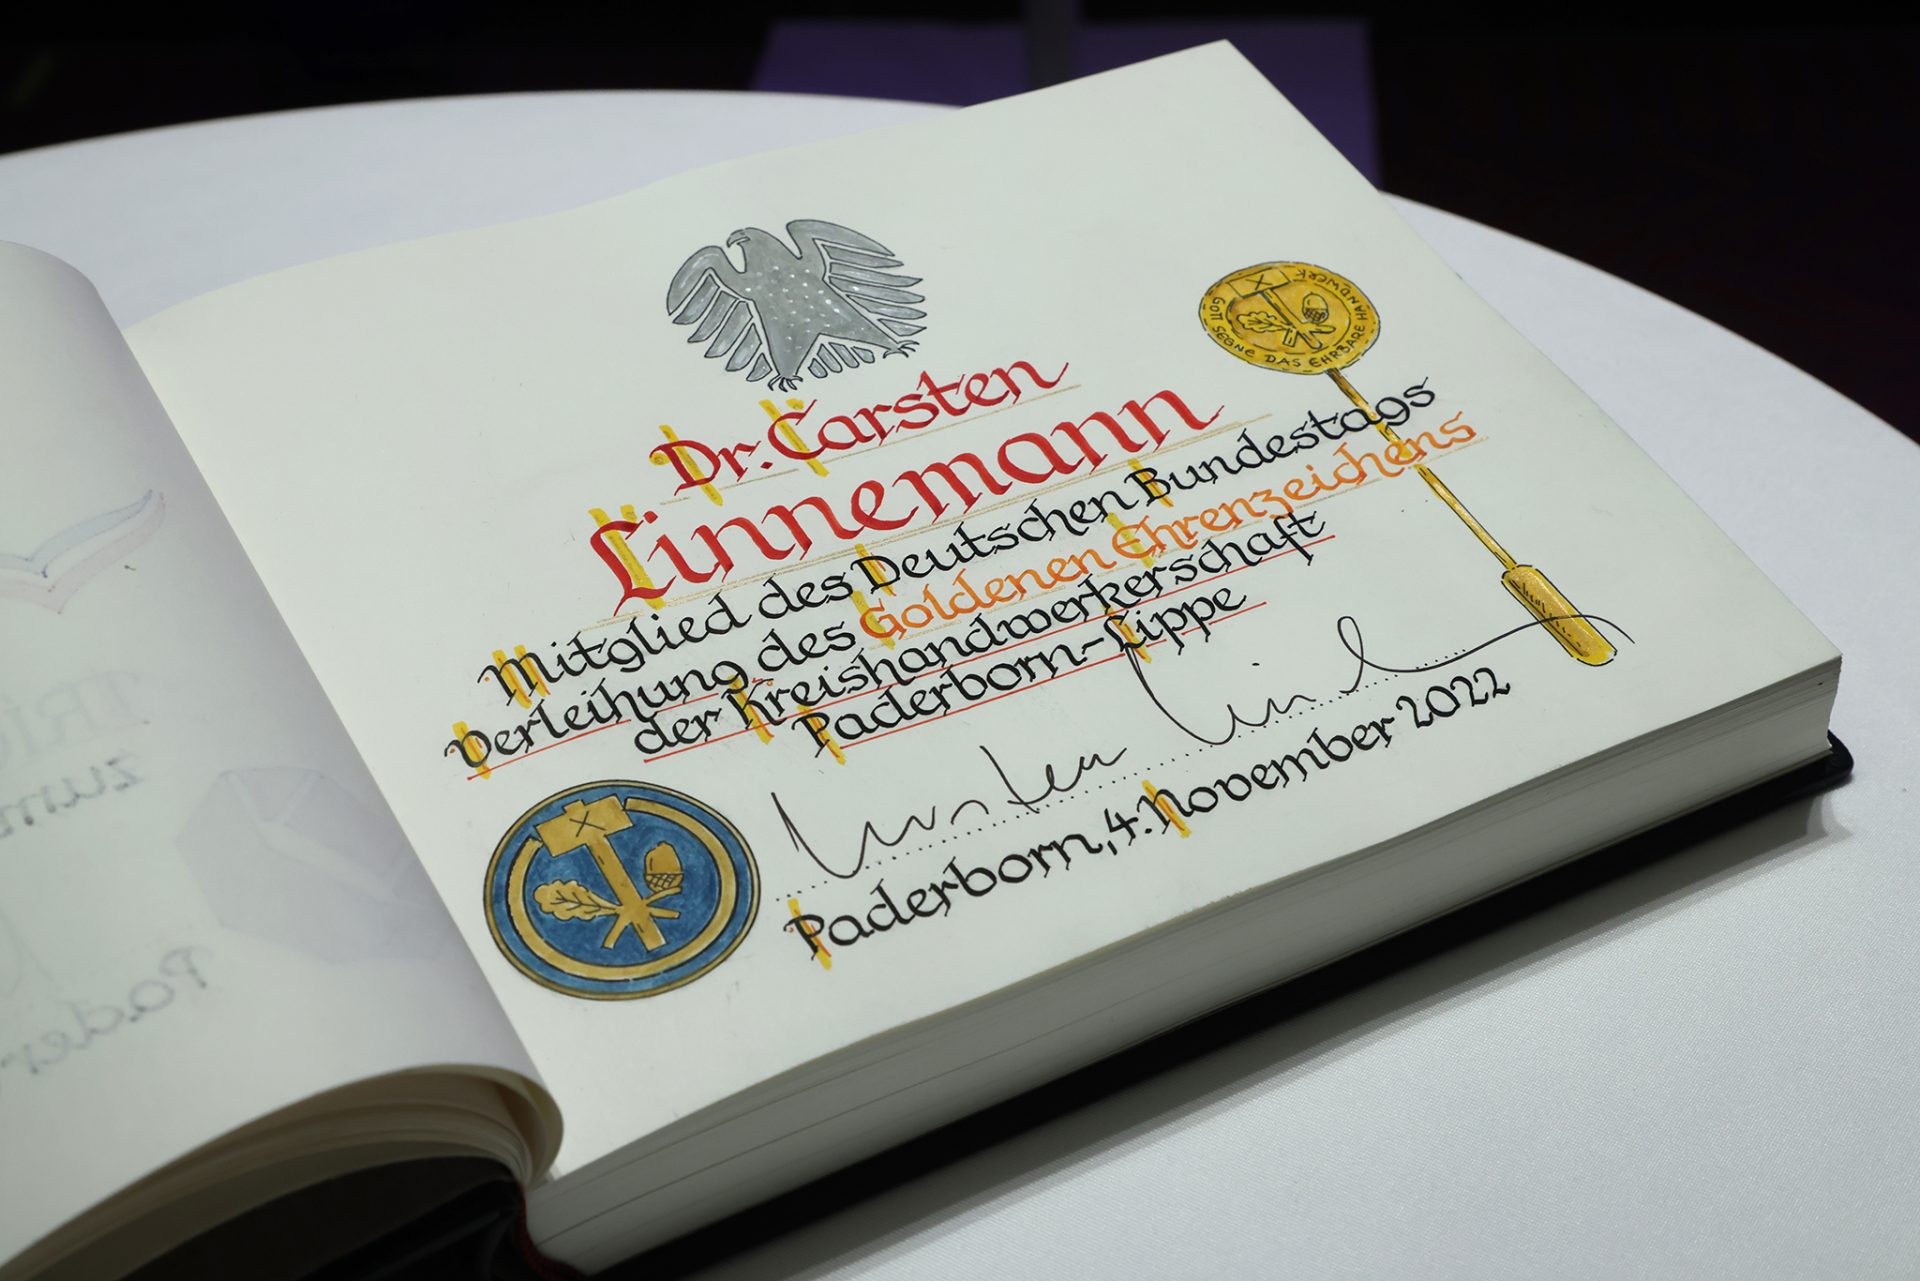 Dr. Carsten
Linnemann
Mitglied des Deutschen Bundestags
Verleihung des Goldenen Ehrenzeichens
der Kreishandwerkerschaft
Paderborn-Lippe
Carsten Linnemann
Paderborn, 4. November 2022
GOTT SEGNE DAS EHRBARE HANDWERK
zum
Pader